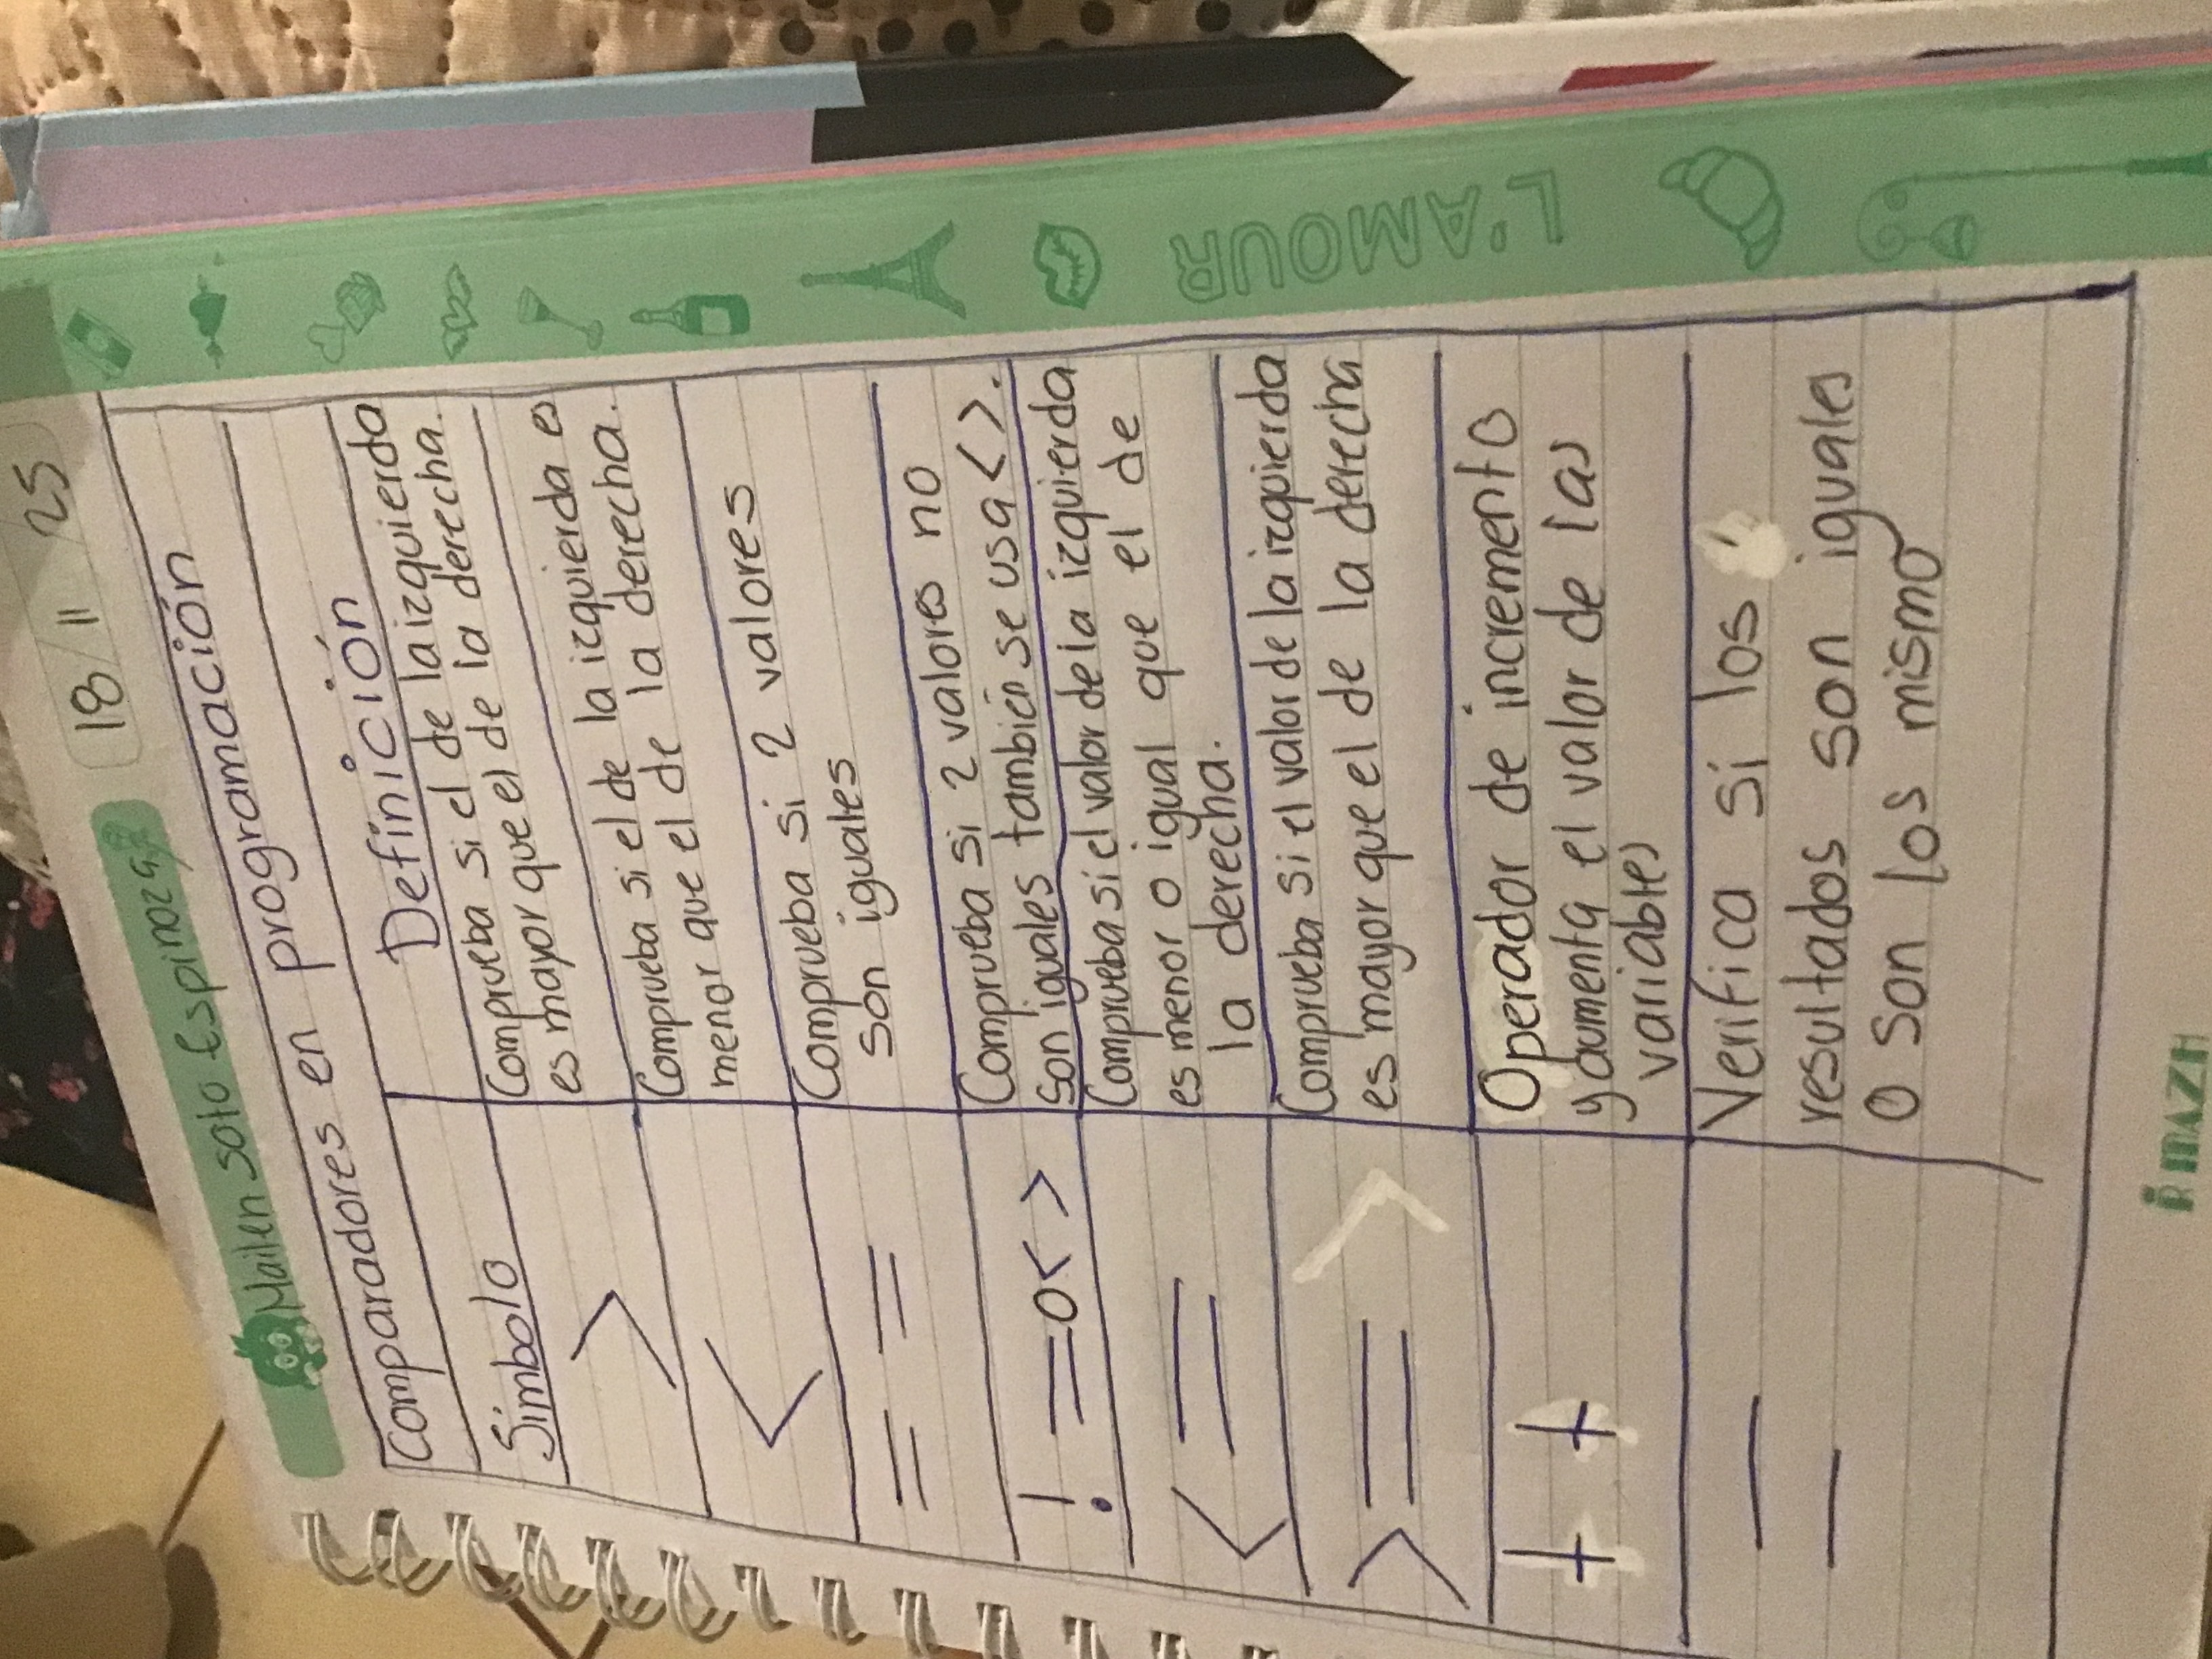 18/11/25
Mailen Soto Espinoza
Comparadores en programación
Símbolo Definición
> Comprueba si el de la izquierda
es mayor que el de la derecha.
< Comprueba si el de la izquierda es
menor que el de la derecha.
== Comprueba si 2 valores
son iguales
!= o <> Comprueba si 2 valores no
son iguales también se usa <>.
<= Comprueba si el valor de la izquierda
es menor o igual que el de
la derecha.
>= Comprueba si el valor de la izquierda
es mayor que el de la derecha
++ Operador de incremento
y aumenta el valor de las
variables
= Verifica si los
resultados son iguales
o son los mismo
L'AMOUR